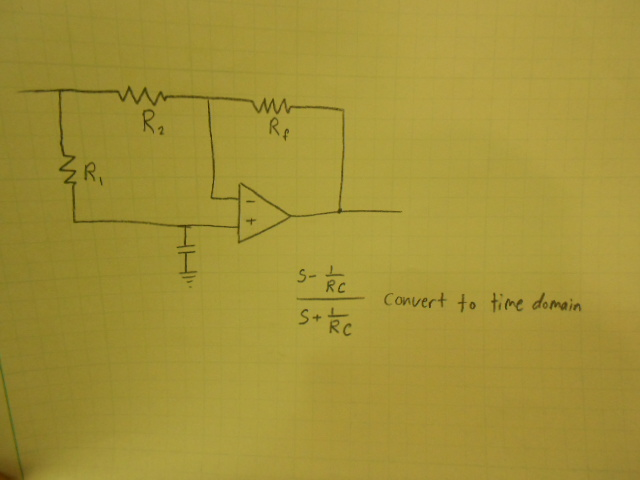 R₂
R_f
R₁
−
+
S- 1/RC
S+ 1/RC
Convert to time domain